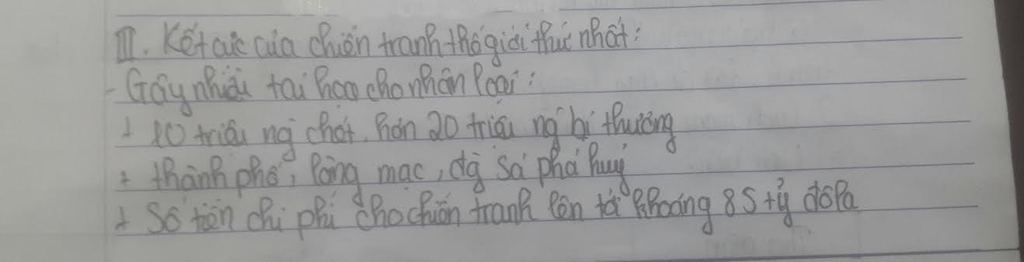 III. Kết cục của chiến tranh thế giới thứ nhất:
- Gây nhiều tai họa cho nhân loại:
+ 10 triệu ng chết, hơn 20 triệu ng bị thương
+ thành phố, làng mạc, đg sá phá huỷ
+ Số tiền chi phí cho chiến tranh lên tới khoảng 85 tỷ đôla